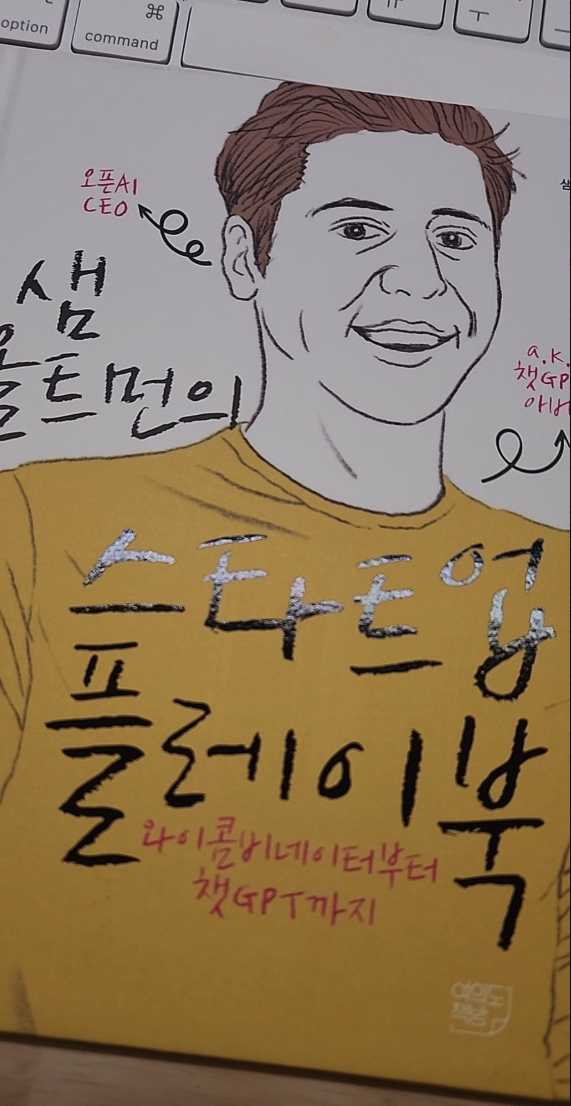 ⌘
option
command
ㅠ
ㅜ
오픈AI
CEO
샘
올트먼의
a.k.
챗GP
스타트업
플레이북
와이콤비네이터부터
챗GPT까지
여의도
책방